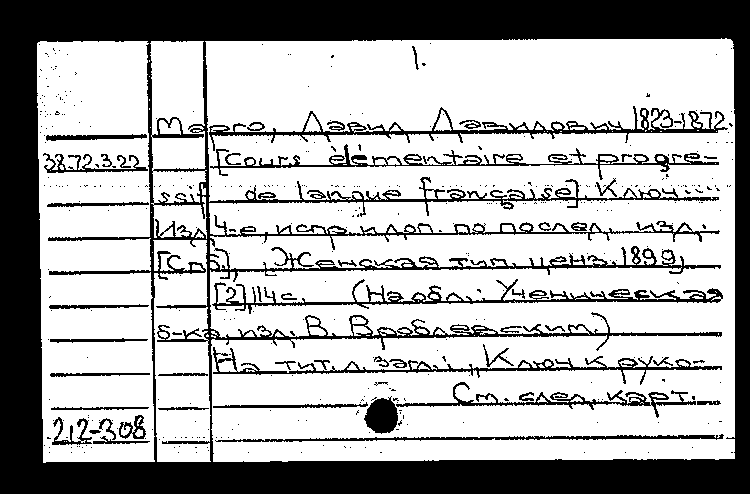 1.
Марго, Давид Давидович, 1823-1872.
38.72.3.22 [Cours élémentaire et progre-
ssif de langue française]. Ключ....
Изд. 4-е, испр. и доп. по послед. изд.
[Спб], Женская тип. ценз. 1899,
[2], 114 с. (На обл.: Ученическая
б-ка, изд. В. Врублевским.)
На тит. л. загл.: "Ключ к руко-
См. след. карт.
212-308